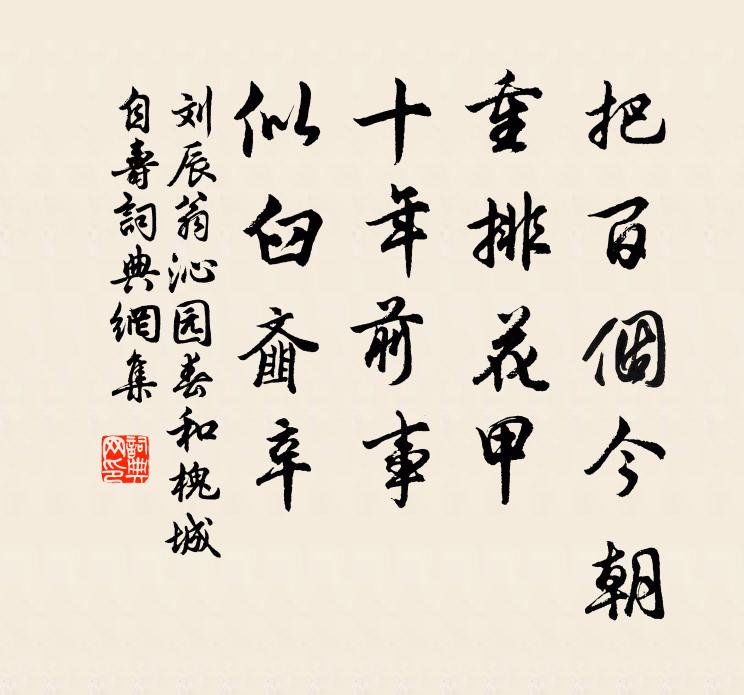 把百個今朝
重排花甲
十年前事
似臼齑辛
刘辰翁沁园春和槐城
自壽詞典網集
詞典网印